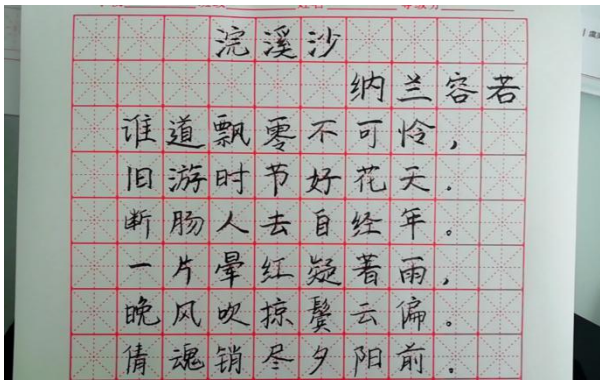 浣溪沙
纳兰容若
谁道飘零不可怜，
旧游时节好花天.
断肠人去自经年。
一片晕红疑著雨，
晚风吹掠鬓云偏。
倩魂销尽夕阳前。